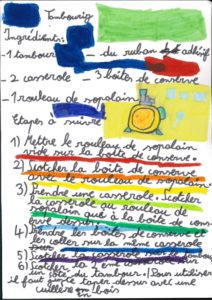 Tambouring
Ingrédients:
- 1 tambour
- du ruban adhésif
- 2 casserole
- 3 boîtes de conserve
- 1 rouleau de sopalain
Etapes à suivre
1) Mettre le rouleau de sopalain
vide sur la boîte de conserve.
2) Scotcher la boîte de conserve
avec le rouleau de sopalain
3) Prendre une casserole. Scotcher
la casserole au rouleau de
sopalain que à la boîte de cons
4) Prendre les boîtes de conserve et
les coller sur la même casserole
5) Scotcher la casserole sur
6) Scotcher
un côté du tambour. Pour utiliser
il faut taper dessus avec une
cuillère en bois